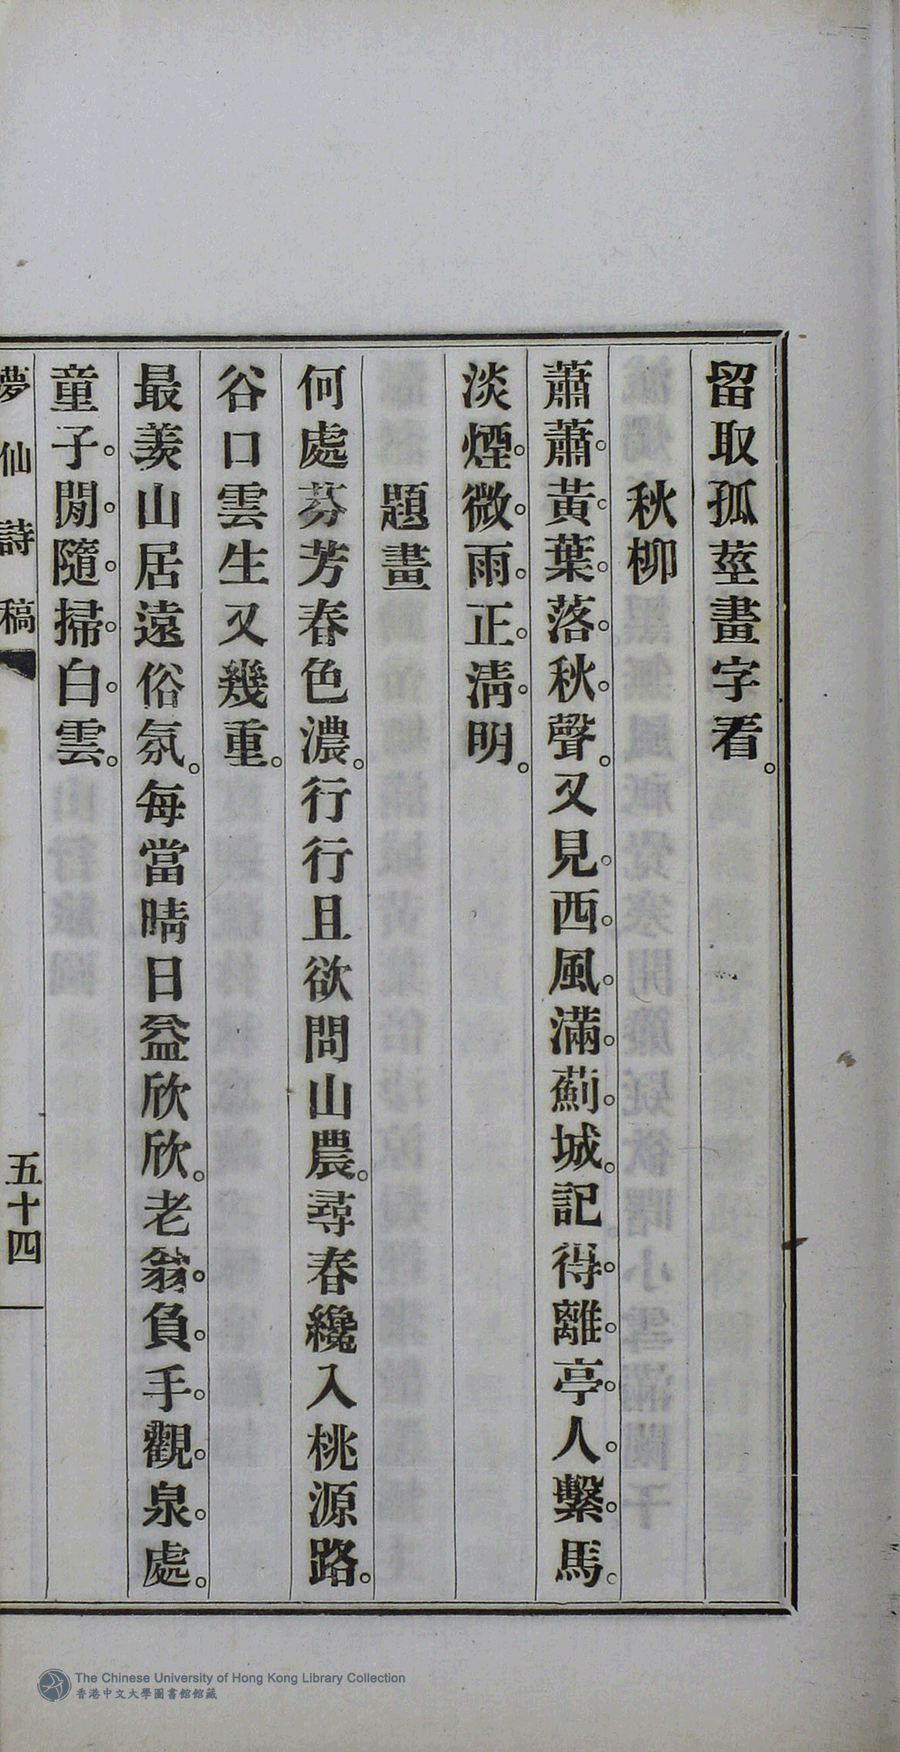 留取孤莖畫字看。
秋柳
蕭蕭黃葉落秋聲。又見西風滿薊城。記得離亭人繫馬。
淡煙微雨正清明。
題畫
何處芬芳春色濃。行行且欲問山農。尋春纔入桃源路。
谷口雲生又幾重。
最羨山居遠俗氛。每當晴日益欣欣。老翁負手觀泉處。
童子閒隨掃白雲。
夢仙詩稿
五十四
The Chinese University of Hong Kong Library Collection
香港中文大學圖書館館藏